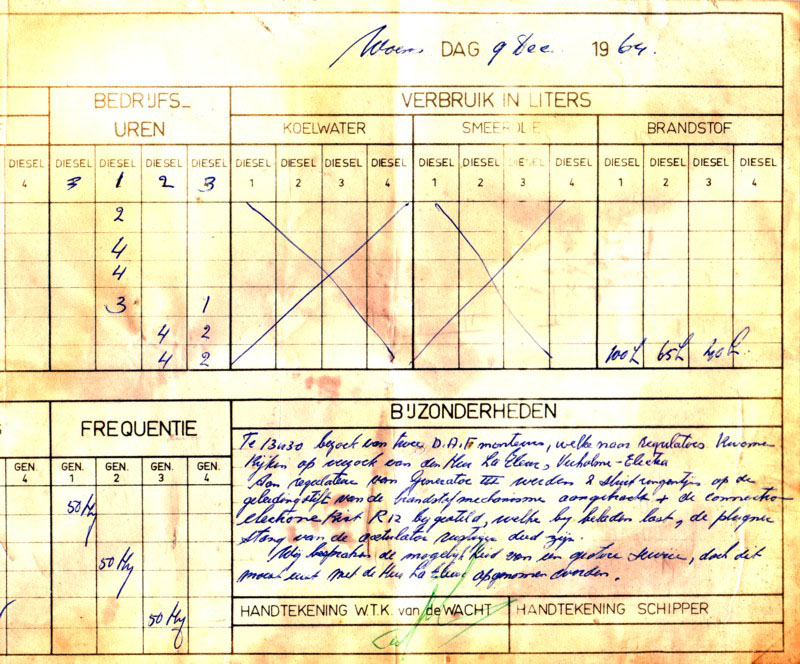 Woens DAG 9 Dec. 1964.
BEDRIJFS_ UREN VERBRUIK IN LITERS
KOELWATER SMEEROLIE BRANDSTOF
DIESEL DIESEL DIESEL DIESEL DIESEL DIESEL DIESEL DIESEL DIESEL DIESEL DIESEL DIESEL DIESEL DIESEL DIESEL DIESEL DIESEL
4 3 1 2 3 1 2 3 4 1 2 3 4 1 2 3 4
2
4
4
3 1
4 2
4 2 100 L 65 L 40 L.
S FREQUENTIE BIJZONDERHEDEN
GEN. 4 GEN. 1 GEN. 2 GEN. 3 GEN. 4
50 Hz
50 Hz
50 Hz
Te 13u30 bezoek van twee D.A.F. monteurs, welke naar regulateurs kwamen
kijken op verzoek van den Heer La Fleur, Verholme-Electra
Aan regulateur van Generator III werden 2 op de
geleidingstift van de brandstofmechanisme aangebracht + de
R12 bijgesteld, welke bij beladen last, de
stang van de deed zijn.
Wij bespraken de mogelijkheid van een grotere service, doch dit
moest met de Heer La Fleur opgenomen worden.
HANDTEKENING W.T.K. van de WACHT HANDTEKENING SCHIPPER